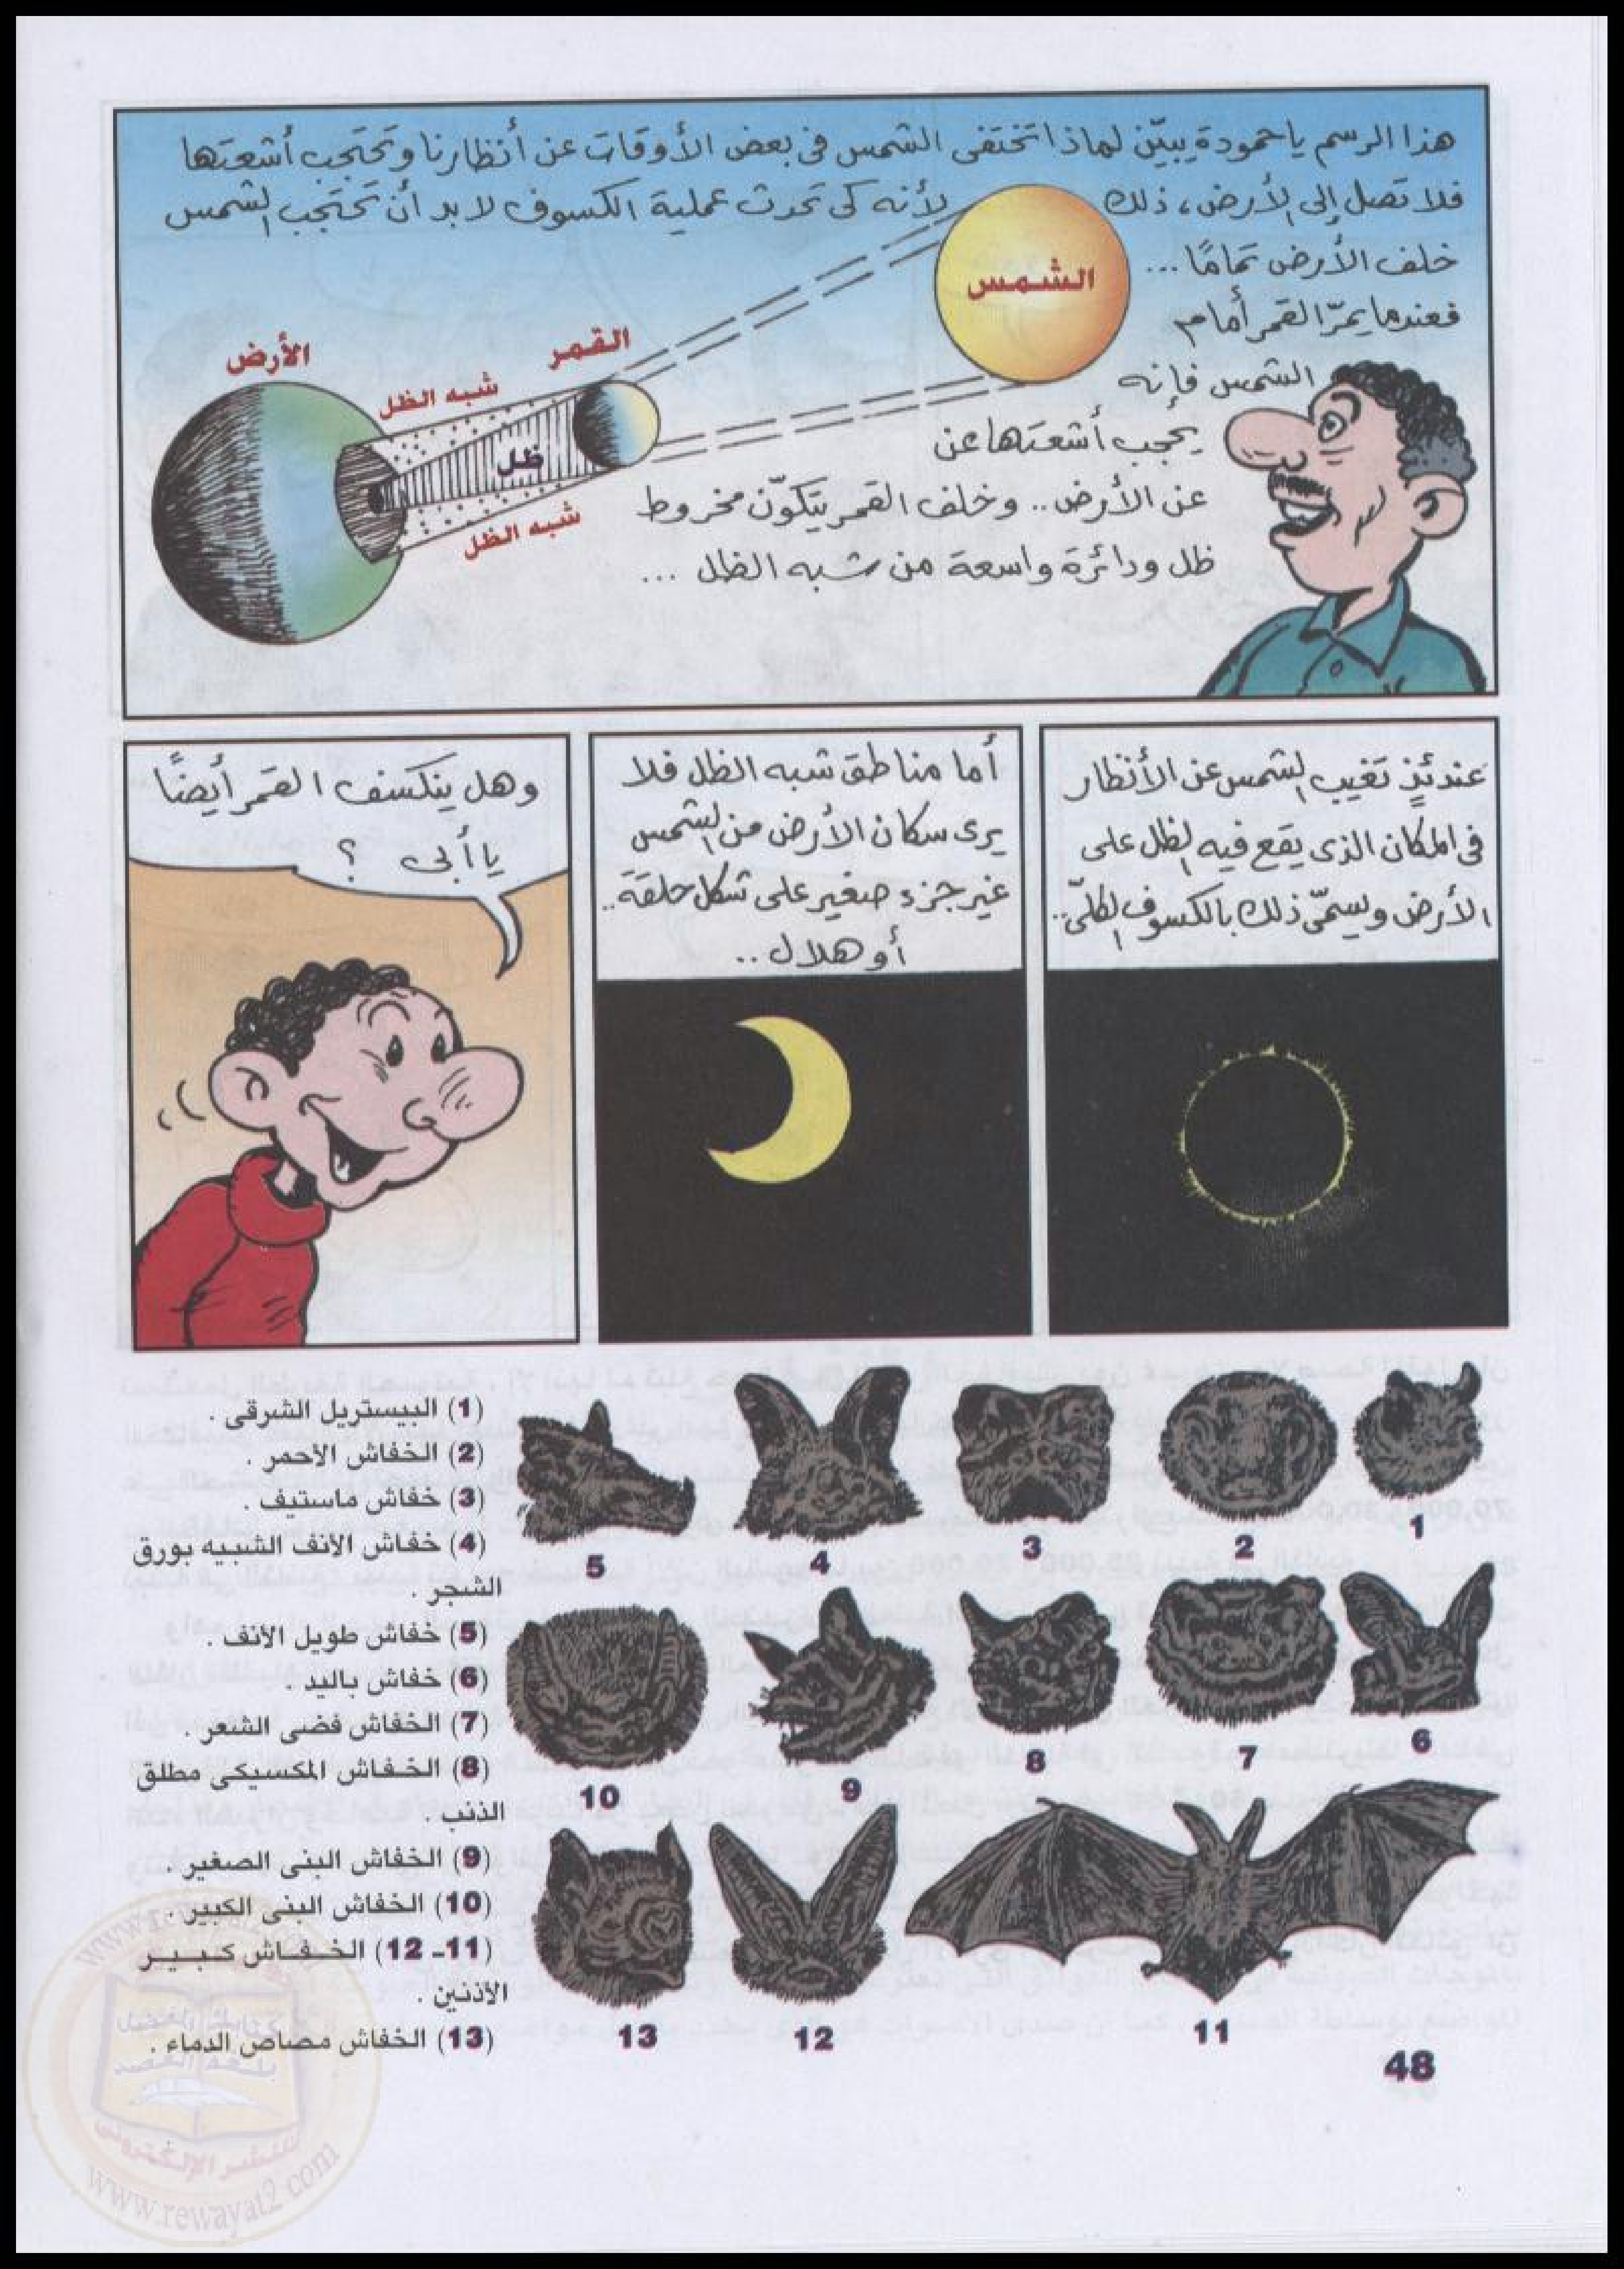 هذا الرسم يا حمودة يبيّن لماذا تختفى الشمس فى بعض الأوقات عن أنظارنا وتحتجب أشعتها
فلا تصل إلى الأرض، ذلك لأنه كى تحدث عملية الكسوف لا بد أن تحتجب الشمس
خلف الأرض تمامًا ...
فعندما يمرّ القمر أمام
الشمس فإنه
يحجب أشعتها عن
عن الأرض .. وخلف القمر يتكوّن مخروط
ظل ودائرة واسعة من شبه الظل ...
الشمس
القمر
الأرض
شبه الظل
ظل
شبه الظل
عندئذٍ تغيب الشمس عن الأنظار
فى المكان الذى يقع فيه الظل على
الأرض ويسمّى ذلك بالكسوف الكلّى ..
أما مناطق شبه الظل فلا
يرى سكان الأرض من الشمس
غير جزء صغير على شكل حلقة ..
أو هلال ..
وهل ينكسف القمر أيضًا
يا أبى ؟
(1) البيستريل الشرقى .
(2) الخفاش الأحمر .
(3) خفاش ماستيف .
(4) خفاش الأنف الشبيه بورق
الشجر .
(5) خفاش طويل الأنف .
(6) خفاش باليد .
(7) الخفاش فضى الشعر .
(8) الخفاش المكسيكى مطلق
الذنب .
(9) الخفاش البنى الصغير .
(10) الخفاش البنى الكبير .
(11- 12) الخفاش كبير
الأذنين .
(13) الخفاش مصاص الدماء .
1
2
3
4
5
6
7
8
9
10
11
12
13
48
www.rewayat2.com